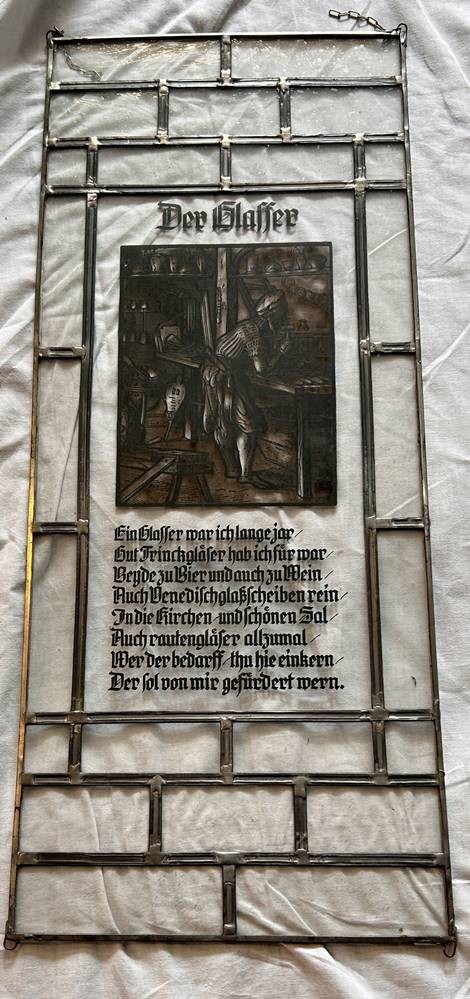 Der Glasser
Ein Glasser war ich lange jar/
Gut Trinckgläser hab ich für war/
Beyde zu Bier und auch zu Wein/
Auch Venedisch glaßscheiben rein/
In die Kirchen und schönen Sal/
Auch rautengläser allzumal/
Wer der bedarff/thu hie einkern/
Der sol von mir gefürdert wern.